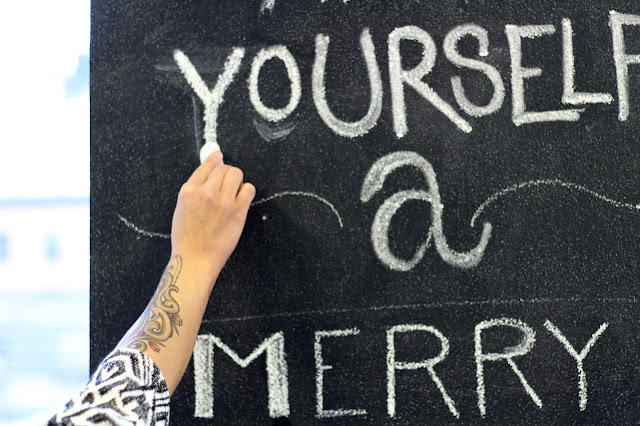 YOURSELF
a
MERRY